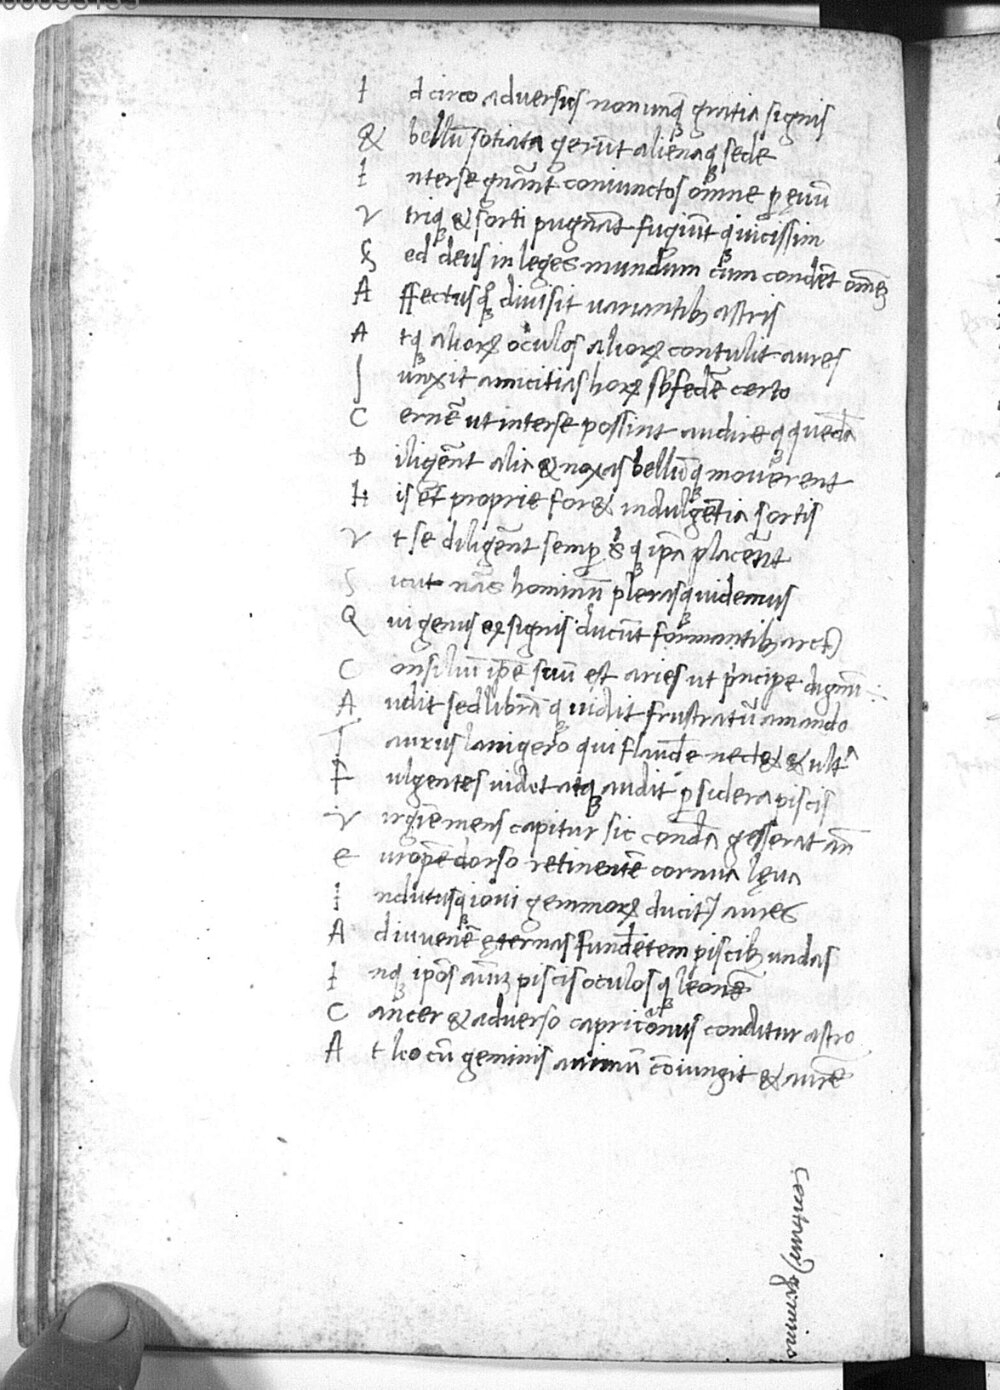 I d circo adversis nonunq; gratia signis
& bellū sotiata gerūt alienaq; sede
I nterse gnãnt coniunctos omne p ęuū
V triq; & sorti pugnãt fugiūt q; uicissim
S ed deus in leges mundum cum condēt omē
A ffectusq; diuisit uariantib; astris
A tq; alioꝝ oculos alioꝝ contulit aures
I unxit amicitias horꝝ sb fedē certo
C ernē ut interse possint audireq; quedã
D iligēnt alia & noxas bellūq; mouerent
H is etē proprie for& indulgētia sortis
V t se diligēnt semp sq; ip̃a placēnt
S icut nãs hominū plerasq; uidemus
Q ui genus ex signis ducūt formantib; arct
C onsiliū ip̃e suū est aries ut p̃ncipe dignū
A udit sed librã q; uidit frustratū amando
T aurus lanigero qui flaude nect& & ult^a
F ulgentes uidet atq; audit p sidera piscis
V irgiē mens capitur sic condã gesserat añ
E uropē dorso retinentē cornua lęua
I ndutusq; ioui gemmoꝝ ducitꝫ aures
A d iuuenē ęternas fundētem piscib; undas
I nq; ip̃os aīu piscis oculosq; leonē
C ancer & adverso capricōnus conditur astro
A t leo cū geminis animū cōiungit & aurē
centauri geminos